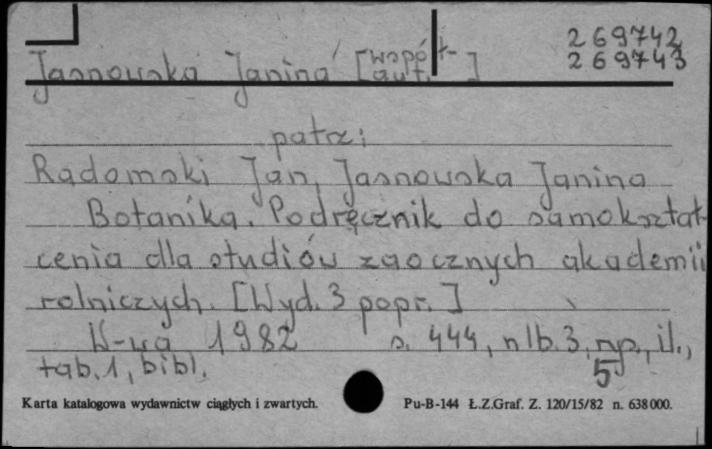 269742
Jasnowska Janina [współ-
aut.] 269743
patrz:
Radomski Jan, Jasnowska Janina
Botanika. Podręcznik do samokształ-
cenia dla studiów zaocznych akademii
rolniczych. [Wyd. 3 popr.]
W-wa 1982 s. 444, nlb. 3, rys., il.,
tab. 1, bibl. 5
Karta katalogowa wydawnictw ciągłych i zwartych. Pu-B-144 Ł.Z.Graf. Z. 120/15/82 n. 638000.